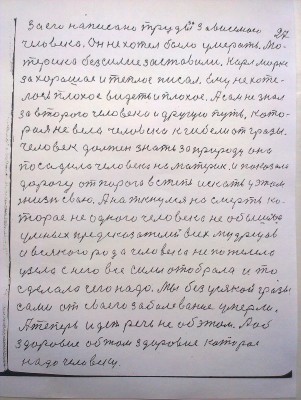 27.
За его написано труды зависимого
человека. Он не хотел было умерать. Мо-
терика безсилие заставили. Карл маркс
за хорошая и теплое писал. Ему не хоте-
лось плохое видеть и плохое. А сам не знал
за второго человека и другую путь, кото-
рая не вела человека к гибели от грязы.
Человек должен знать за природу она
посадила человека на материк, и показала
дорогу от порога в степь искать у этом
жизнь сваю. Она ткнулия на смерть ко-
торая не одного человека не
умных предсказателей всех мудрецов
и всякого рода человека не пожалела
узела с него все силы отобрала и то
сделала чего надо. Мы без усякой грязы
сами от сваего заболевание умерли.
А теперь идет речь не об этом. А об
здоровие об том здоровие которая
надо человеку.